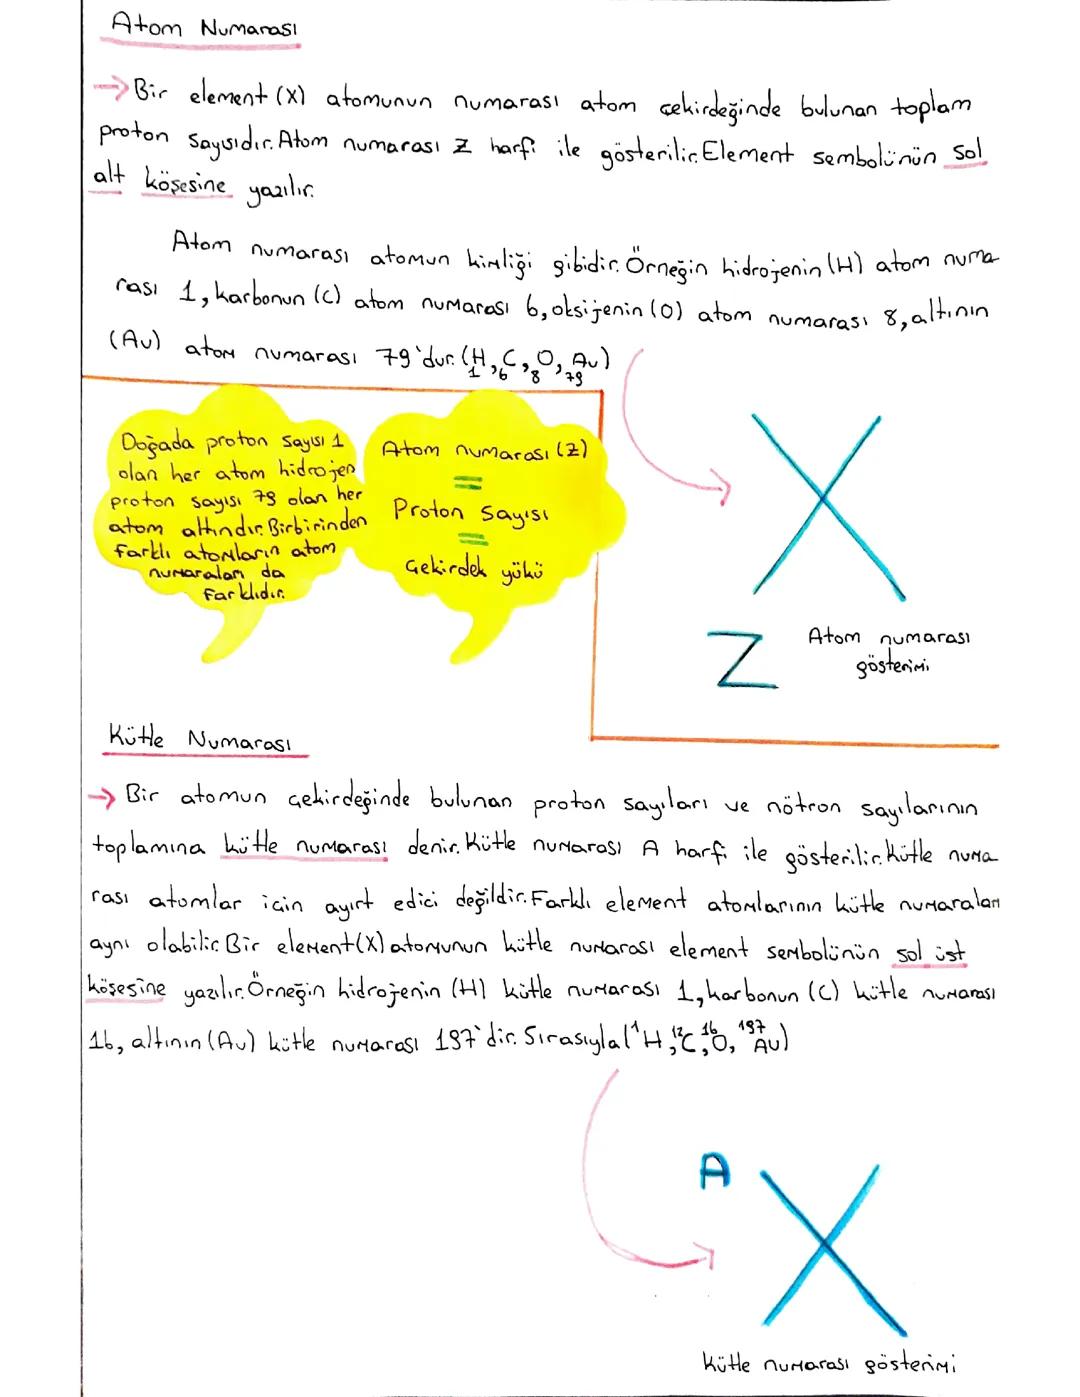 Atom Numarası
→ Bir element (X) atomunun numarası atom çekirdeğinde bulunan toplam
proton sayısıdır. Atom numarası Z harfi ile gösterilir. Element sembolünün sol
alt köşesine yazılır.
Atom numarası atomun kimliği gibidir. Örneğin hidrojenin (H) atom numa
rası 1, karbonun (C) atom numarası 6, oksijenin (O) atom numarası 8, altının
(Au) atom numarası 79'dur. (₁H, ₆C, ₈O, ₇₉Au)
Doğada proton sayısı 1
olan her atom hidrojen
proton sayısı 79 olan her
atom altındır. Birbirinden
farklı atomların atom
numaraları da
farklıdır.
Atom numarası (Z)
=
Proton Sayısı
=
Çekirdek yükü
X
Z
Atom numarası
gösterimi
Kütle Numarası
→ Bir atomun çekirdeğinde bulunan proton sayıları ve nötron sayılarının
toplamına kütle numarası denir. Kütle numarası A harfi ile gösterilir. Kütle numa
rası atomlar için ayırt edici değildir. Farklı element atomlarının kütle numaraları
aynı olabilir. Bir element (X) atomunun kütle numarası element sembolünün sol üst
köşesine yazılır. Örneğin hidrojenin (H) kütle numarası 1, karbonun (C) kütle numarası
16, altının (Au) kütle numarası 197'dir. Sırasıyla (¹H, ¹²C, ¹⁶O, ¹⁹⁷Au)
A
X
Kütle numarası gösterimi